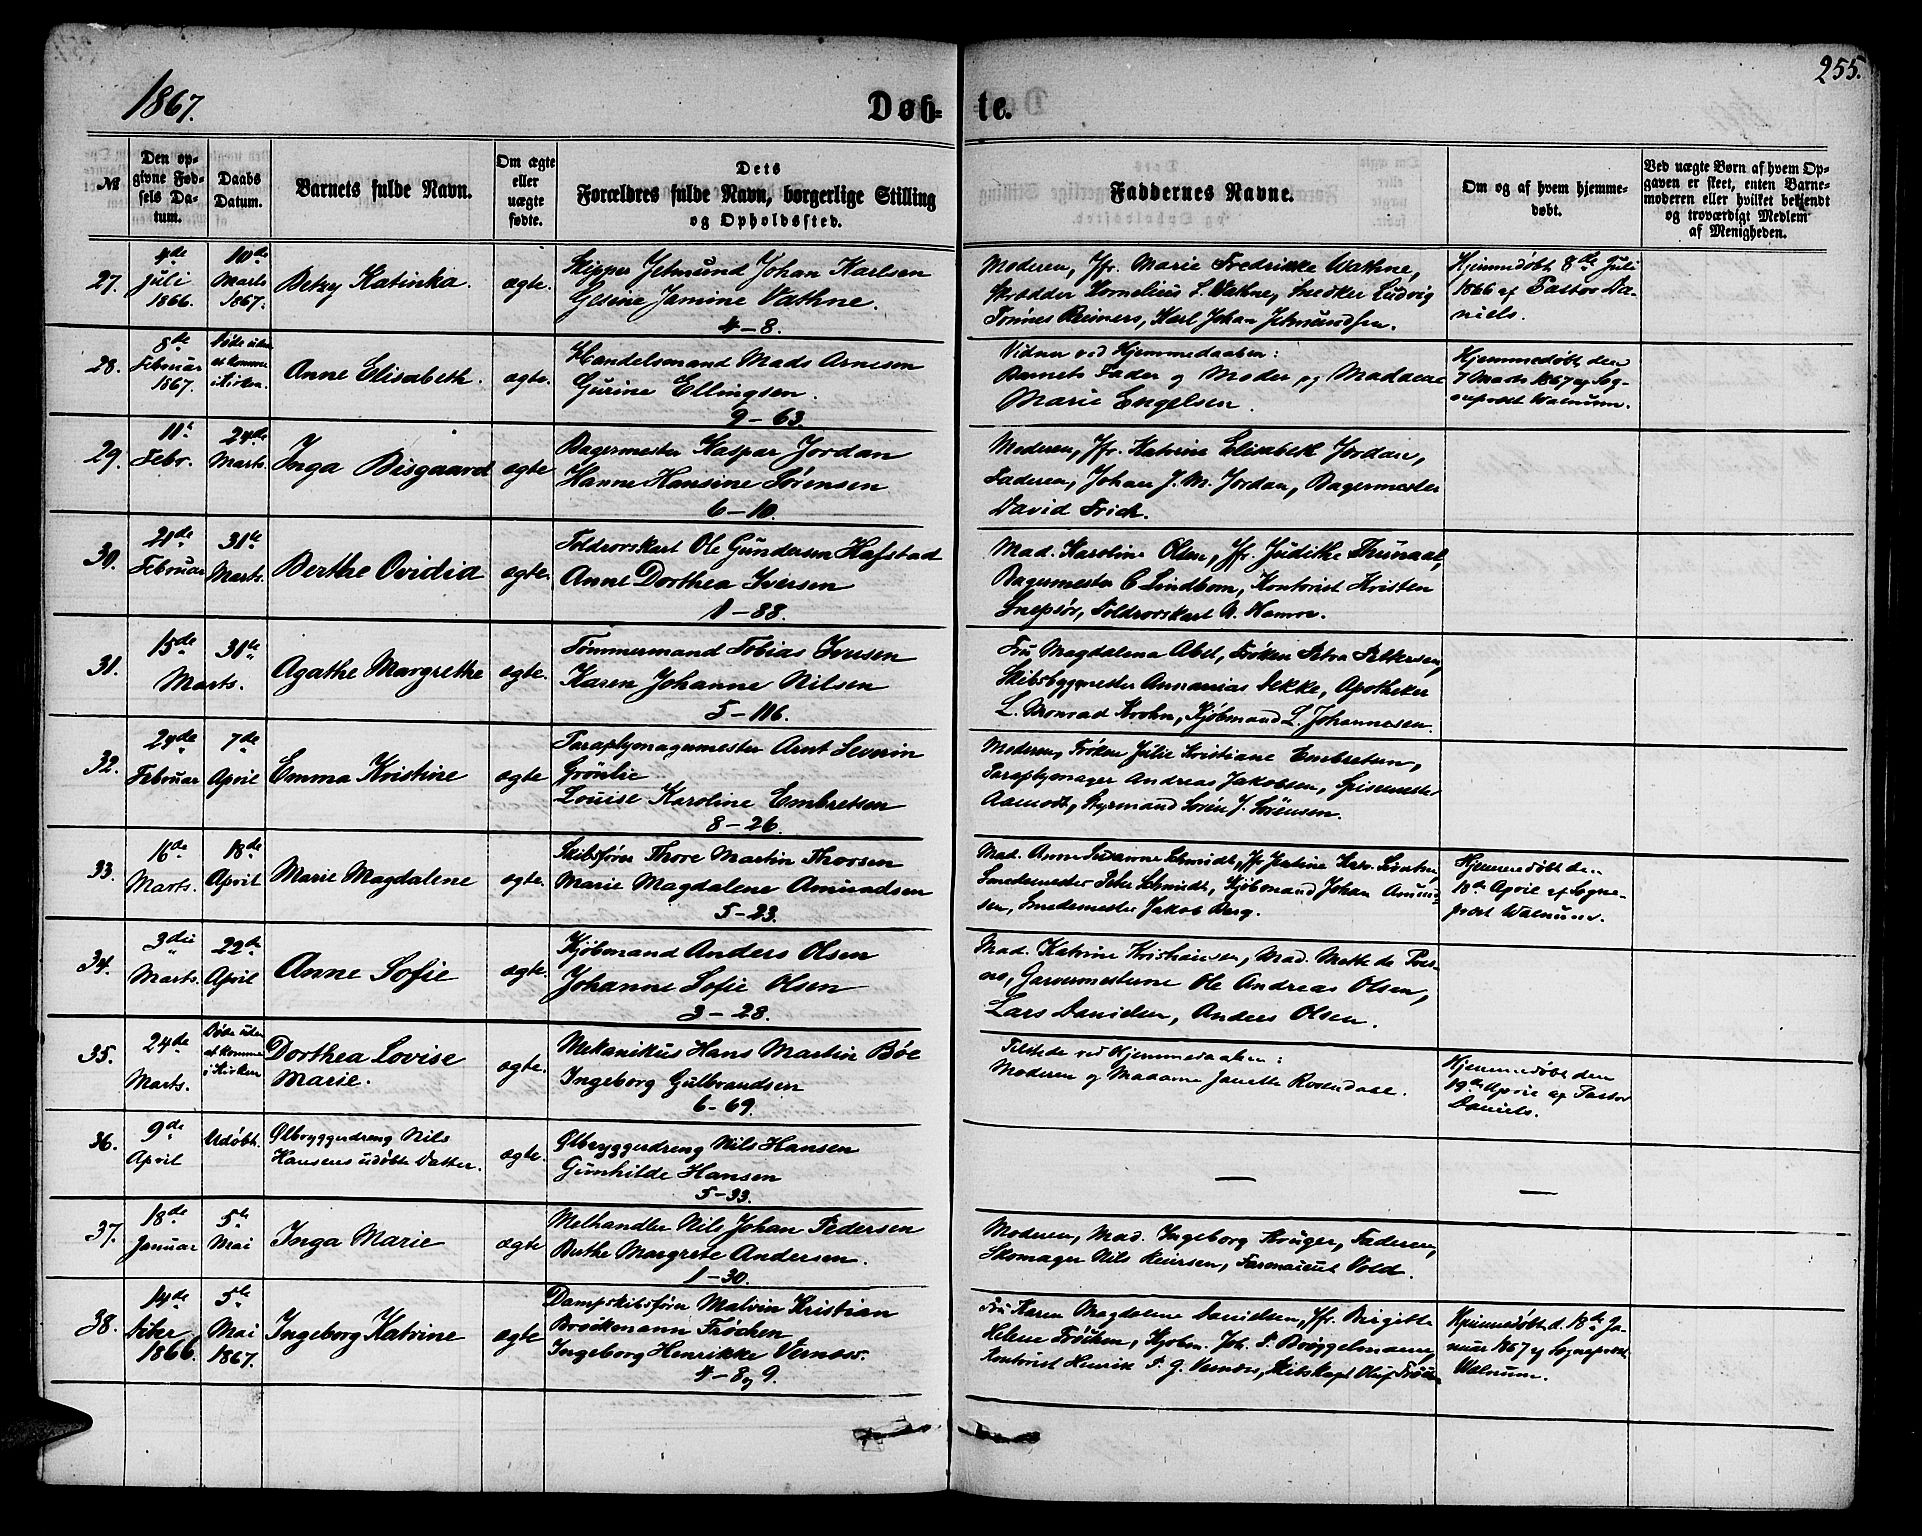 1867.
Døb-
te.
255.
№
Den op-
givne Fød-
sels Da-
tum.
Daabs
Datum.
Barnets fulde Navn.
Om ægte
eller
uægte
fødte.
Dets
Forældres fulde Navn, borgerlige Stilling
og Opholdssted.
Faddernes Navne.
Om og af hvem hjemme-
døbt.
Ved uægte Børn af hvem Op-
gaven er skeet, enten Barne-
moderen eller hvilket bekjendt
og troværdigt Medlem
af Menigheden.
27.
4de
Juli
1866.
10de
Marts
1867.
Betzy Katinka.
ægte.
Skipper Jetmund Johan Karlsen
Gesine Jamine Vathne.
4-8.
Moderen, Jfr. Marie Fredrikke Wathne,
Skrædder Kornelius L. Wathne, Snedker Ludvig
Tønnes Reimers, Karl Johan Jetmundsen.
Hjemmedøbt 8de Juli
1866 af Pastor Da-
niels.
28.
8de
Februar
1867.
Døde uden
at komme
i Kirken.
Anne Elisabeth.
ægte.
Handelsmand Mads Arnesen
Gurine Ellingsen.
9-63.
Vidner ved Hjemmedaaben:
Barnets Fader og Moder, og Madame
Marie Engelsen.
Hjemmedøbt den
7 Marts 1867 af Sog-
neprest Walnum.
29.
11te
Febr.
24de
Marts.
Inga Bisgaard
ægte
Bagermester Kaspar Jordan
Hanne Hansine Sørensen
6-10.
Moderen, Jfr. Katrine Elisabeth Jordan,
Faderen, Johan J. M. Jordan, Bagermester
David Frich.
30.
21de
Februar
31te
Marts.
Berthe Ovidia
ægte.
Toldrorskarl Ole Gundersen Hafstad
Anne Dorthea Iversen
1-88.
Mad. Karoline Olsen, Jfr. Judithe Thunaal,
Bagermester C Lindbom, Kontorist Kristen
Snepsør, Toldrorskarl N. Hamre.
31.
15de
Marts.
31te
Agathe Margrethe
ægte.
Tømmermand Tobias Iversen
Karen Johanne Nilsen
5-116.
Fru Magdalena Abel, Frøken Petra Pettersen,
Skibsbygmester Annanias Dekke, Apotheker
L. Monrad Krohn, Kjøbmand L. Johannesen.
32.
24de
Februar
7de
April
Emma Kristine
ægte
Paraplymagermester Arnt Severin
Grønlie
Louise Karoline Embretsen
8-26.
Moderen, Frøken Julie Kristiane Embretsen,
Paraplymager Andreas Jakobsen, Spisemester
Aamodt, Styrmand Søren J. Sørensen.
33.
16de
Marts.
18de
April
Marie Magdalene
ægte.
Skibsfører Thore Martin Thorsen
Marie Magdalene Amundsen
5-23.
Mad. Anne Susanne Schmidt, Jfr
Smedemester Peter Schmidt, Kjøbmand Johan Amund-
sen, Smedemester Jakob Berg.
Hjemmedøbt den
18de April af Sogne-
prest Walnum.
34.
3die
Marts.
22de
April
Anne Sofie
ægte.
Kjøbmand Anders Olsen
Johanne Sofie Olsen
3-28.
Mad. Katrine Kristiansen, Mad. Mette da
Garvermesterne Ole Andreas Olsen,
Lars Danielsen, Anders Olsen.
35.
24de
Marts.
Døde uden
at komme
i Kirken
Dorthea Lovise
Marie.
ægte.
Mekanikus Hans Martin Bøe
Ingeborg Gulbrandsen
6-69.
Tilstede ved Hjemmedaaben:
Moderen og Madame Janette Rosendahl.
Hjemmedøbt den
19de April af Pastor
Daniels.
36.
9de
April
Udøbt.
Ølbryggerdreng Nils
Hansens udøbte Datter.
ægte.
Ølbryggerdreng Nils Hansen
Gunhilde Hansen
5-33.
—
—
37.
18de
Januar
5te
Mai
Inga Marie
ægte
Melhandler Nils Johan Pedersen
Berthe Margrete Andersen.
1-30.
Moderen, Mad. Ingeborg Kruger, Faderen,
Skomager Nils Reiersen, Farmaceut Vold.
38.
14de
1866.
5te
Mai
1867.
Ingeborg Katrine
ægte
Dampskibsfører Malvin Kristian
Brockmann Frøchen
Ingeborg Henrikke Vernøs.
4-8 og 9.
Fru Karen Magdalene Danielsen, Jfr. Birgitte
Helene Frøchen, Kjøbm. Joh. F. Brøggelmann,
Kontorist Henrik F. G. Vernøs, Skibskapt Oluf Frøch
Hjemmedøbt d. 18de Ja-
nuar 1867 af Sogneprest
Walnum.